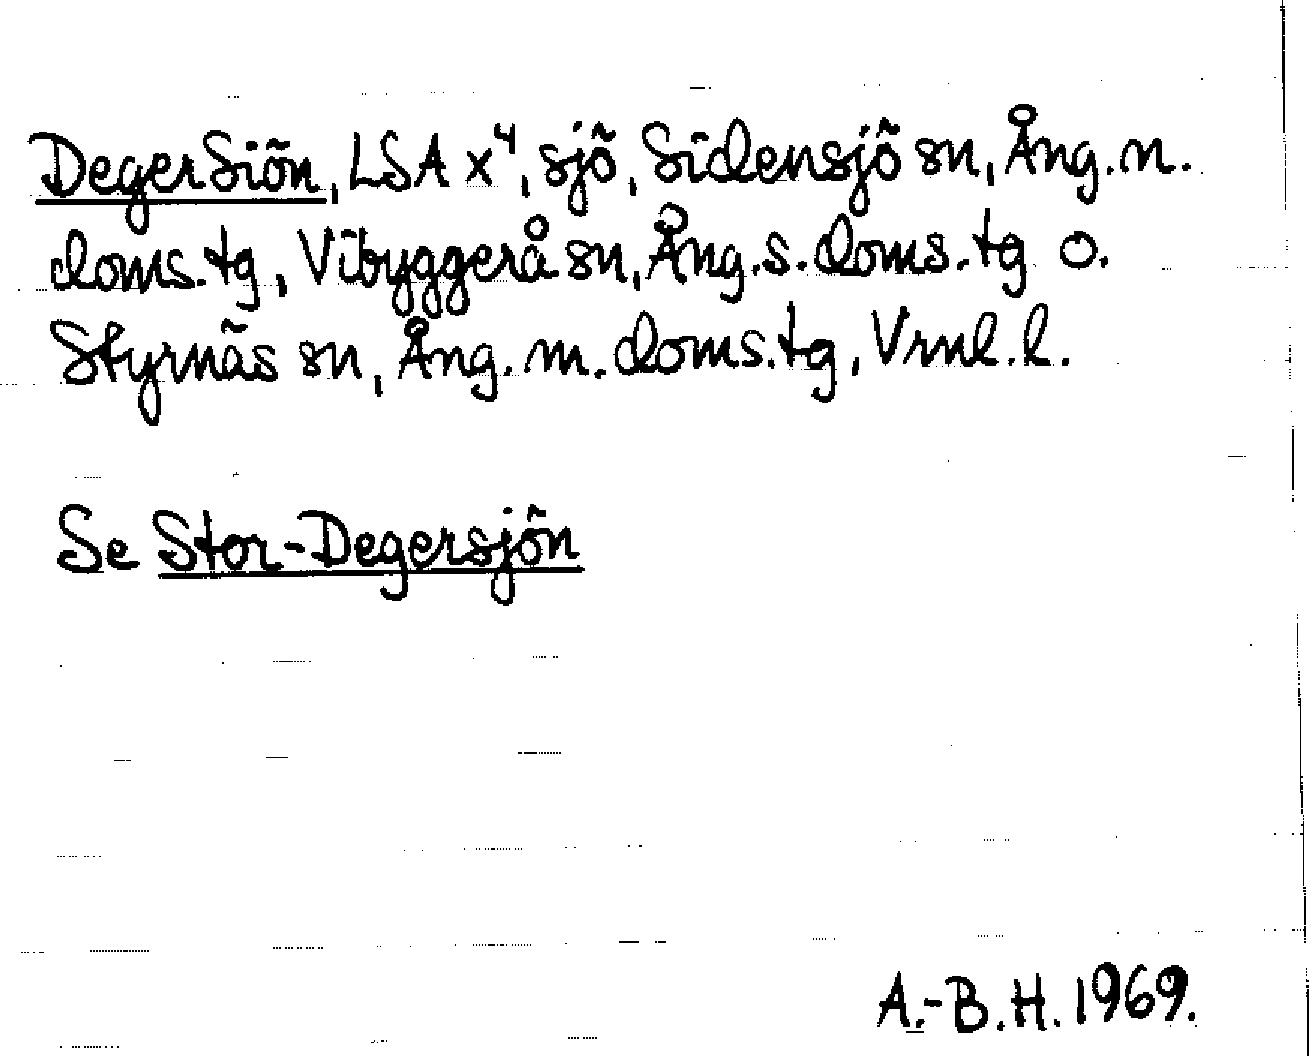 DegerSiön, LSA x⁴, sjö, Sidensjö sn, Ång.n.
doms.tg, Vibyggerå sn, Ång.s.doms.tg o.
Styrnäs sn, Ång.m.doms.tg, Vrnl.l.
Se Stor-Degersjön
A.-B.H. 1969.